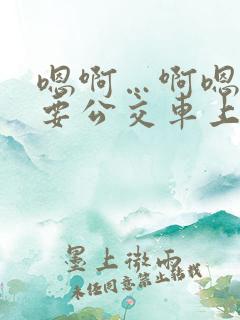 嗯啊…啊嗯
要公交车上
墨上微雨
未经同意禁止转载